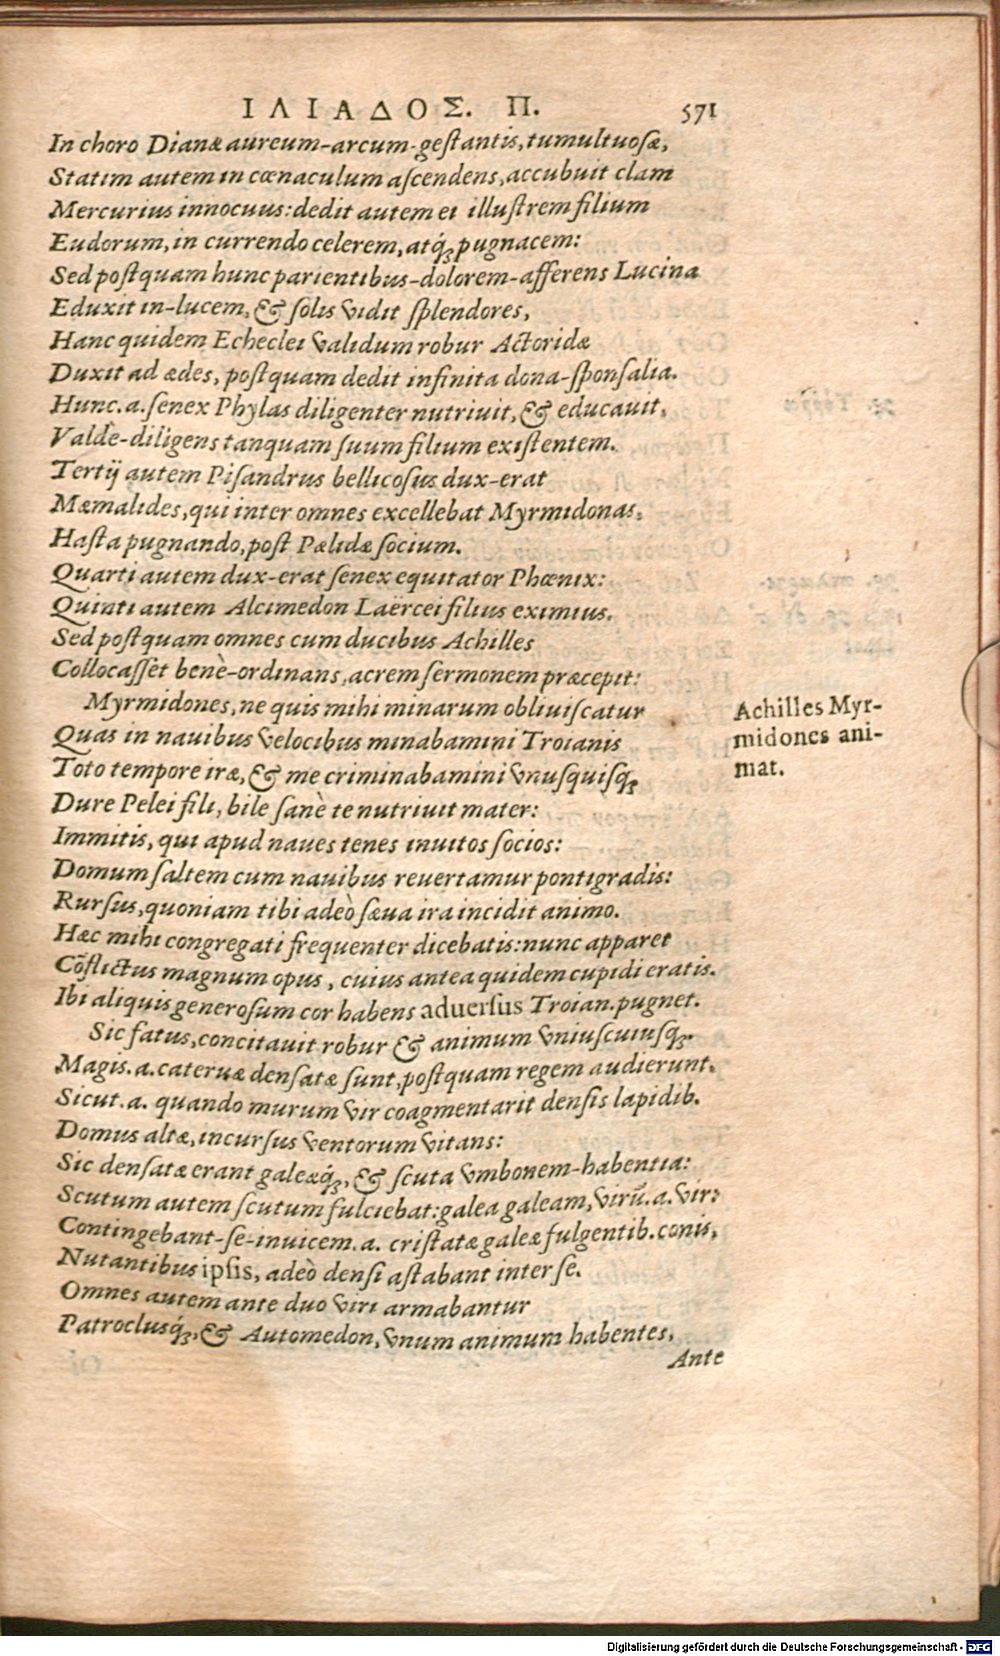 ΙΛΙΑΔΟΣ. Π. 571
In choro Dianæ aureum-arcum-gestantis, tumultuosæ,
Statim autem in cœnaculum ascendens, accubuit clam
Mercurius innocuus: dedit autem ei illustrem filium
Eudorum, in currendo celerem, atq́; pugnacem:
Sed postquam hunc parientibus-dolorem-afferens Lucina
Eduxit in-lucem, & solis vidit splendores,
Hanc quidem Echeclei validum robur Actoridæ
Duxit ad ædes, postquam dedit infinita dona-sponsalia.
Hunc.a. senex Phylas diligenter nutriuit, & educauit,
Valde-diligens tanquam suum filium existentem.
Tertij autem Pisandrus bellicosus dux-erat
Mæmalides, qui inter omnes excellebat Myrmidonas,
Hasta pugnando, post Pælidæ socium.
Quarti autem dux-erat senex equitator Phœnix:
Quinti autem Alcimedon Laërcei filius eximius.
Sed postquam omnes cum ducibus Achilles
Collocasset benè-ordinans, acrem sermonem præcepit:
Myrmidones, ne quis mihi minarum obliuiscatur
Quas in nauibus velocibus minabamini Troianis
Toto tempore iræ, & me criminabamini vnusquisq;
Dure Pelei fili, bile sanè te nutriuit mater:
Immitis, qui apud naues tenes inuitos socios:
Domum saltem cum nauibus reuertamur pontigradis:
Rursus, quoniam tibi adeò sæua ira incidit animo.
Hæc mihi congregati frequenter dicebatis: nunc apparet
Cõflictus magnum opus, cuius antea quidem cupidi eratis.
Ibi aliquis generosum cor habens aduersus Troian. pugnet.
Sic fatus, concitauit robur & animum vniuscuiusq;.
Magis.a. cateruæ densatæ sunt, postquam regem audierunt.
Sicut.a. quando murum vir coagmentarit densis lapidib.
Domus altæ, incursus ventorum vitans:
Sic densatæ erant galeæq́;, & scuta vmbonem-habentia:
Scutum autem scutum fulciebat: galea galeam, virũ.a. vir:
Contingebant-se-inuicem.a. cristatæ galeæ fulgentib. conis,
Nutantibus ipsis, adeò densi astabant inter se.
Omnes autem ante duo viri armabantur
Patroclusq́;, & Automedon, vnum animum habentes,
Ante
Achilles Myr-
midones ani-
mat.
Digitalisierung gefördert durch die Deutsche Forschungsgemeinschaft - DFG